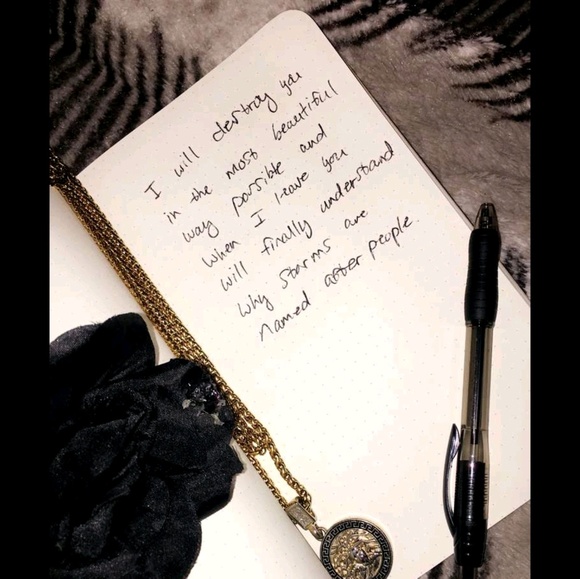 I will destroy you
in the most beautiful
way possible and
when I leave you
will finally understand
why storms are
named after people.